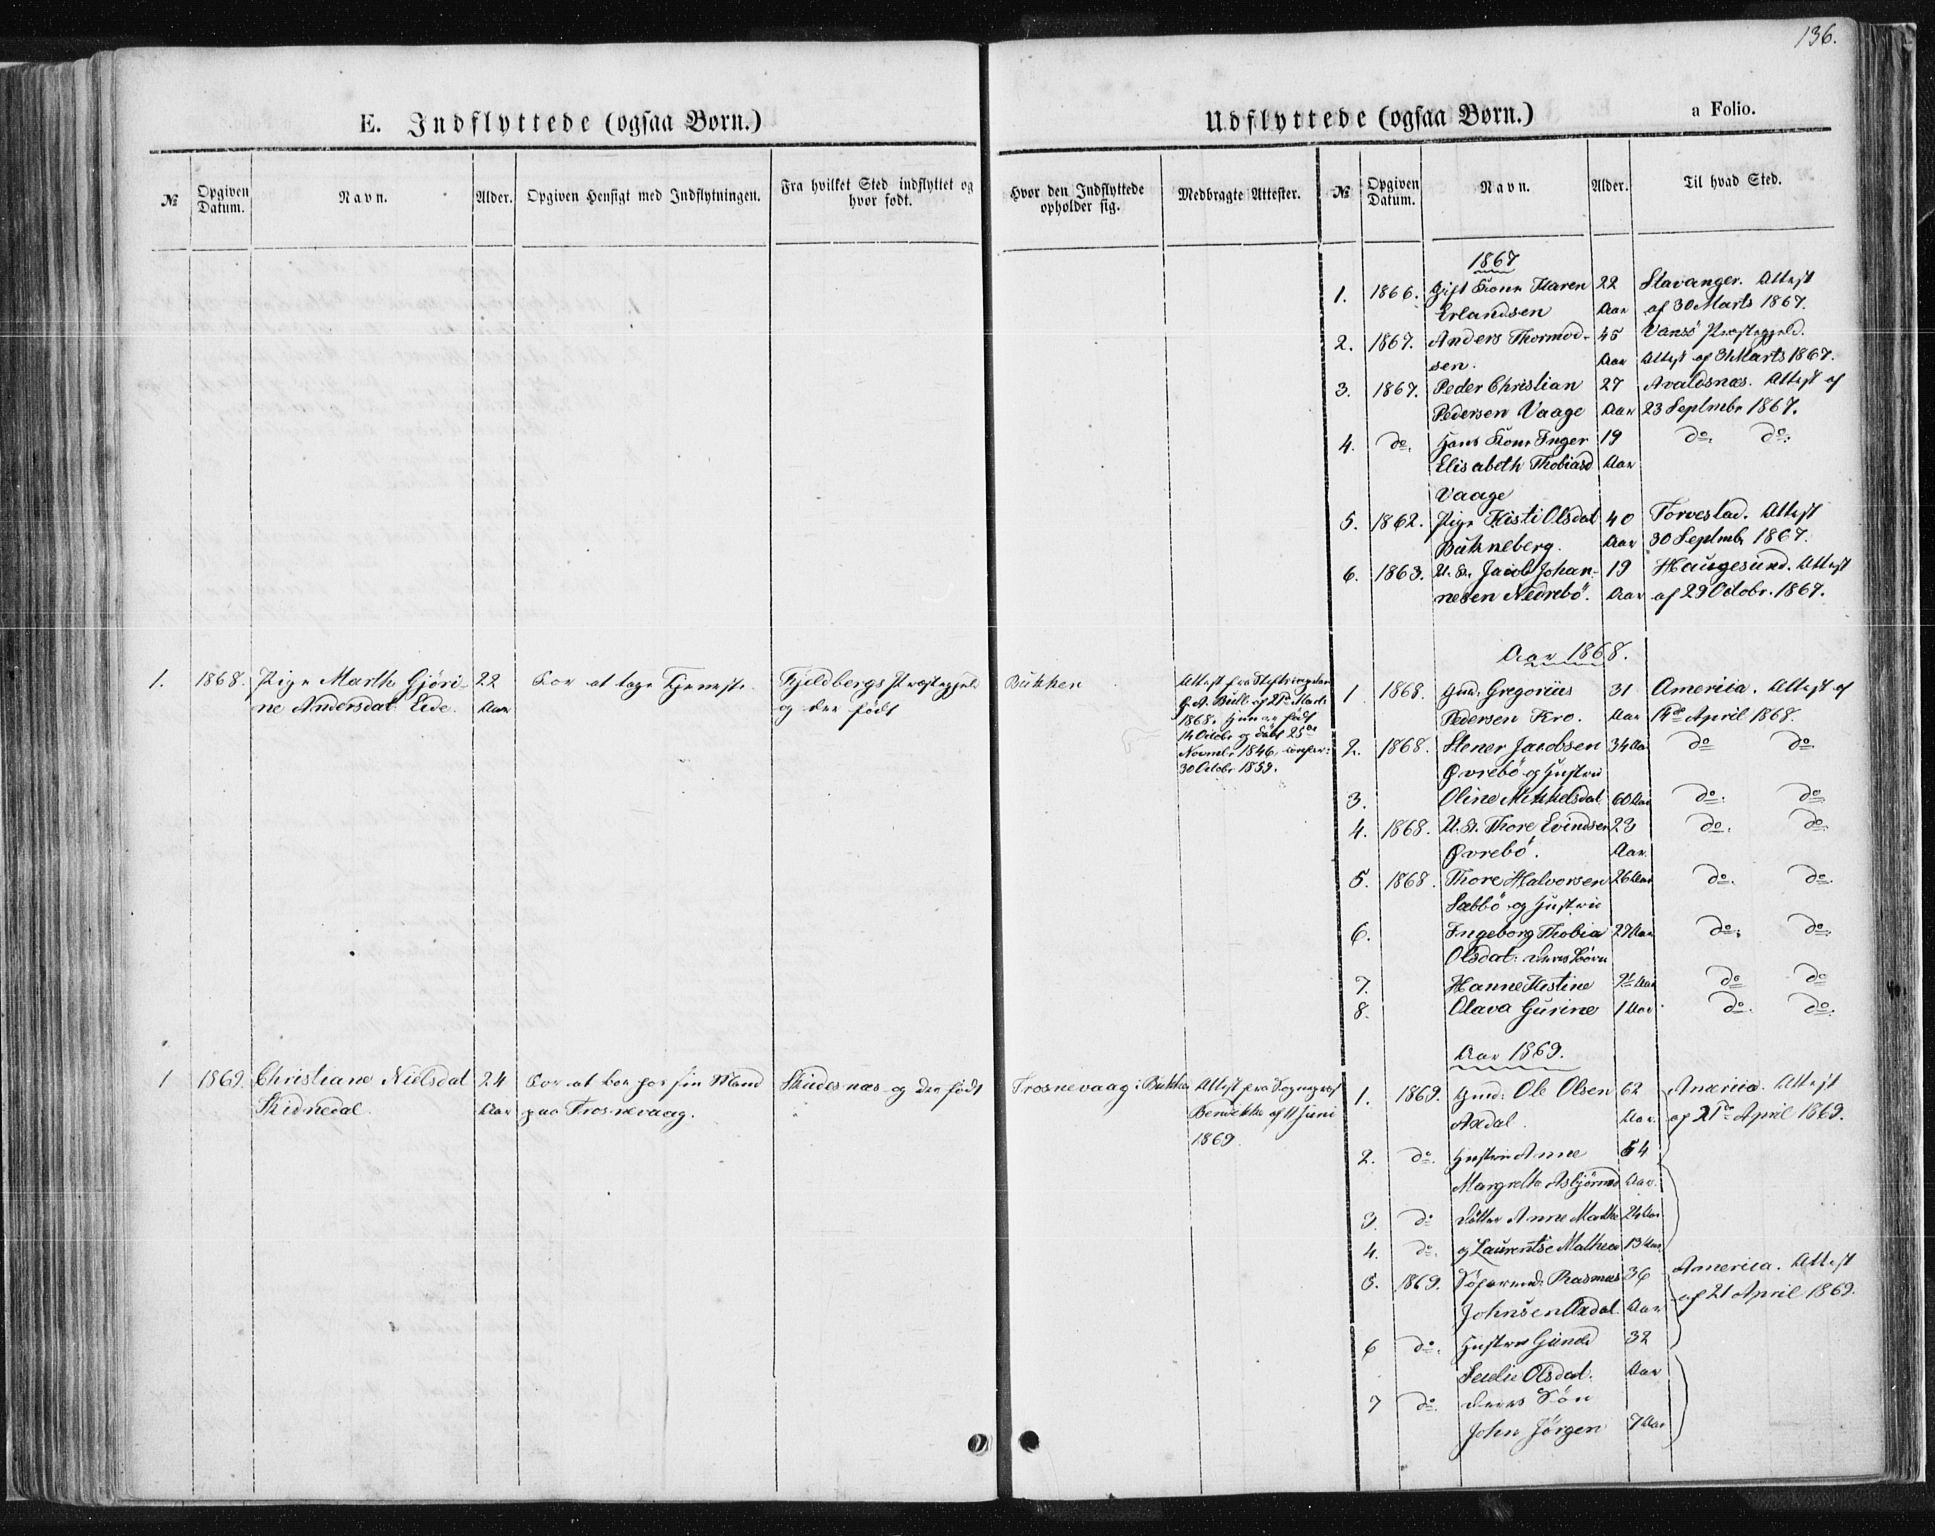 136.
E. Indflyttede (ogsaa Børn.)
№ Opgiven Datum. Navn. Alder. Opgiven Hensigt med Indflytningen. Fra hvilket Sted indflyttet og hvor født.
1. 1868. Pige Marthe Gjøri- 22 For at tage Tjeneste. Fjeldbergs Præstegjeld
ne Andersdat. Eide. Aar og der født
1 1869. Christiane Nielsdat 24 For at bo hos sin Mand Skudesnæs og der født
Aar paa Trosnevaag.
Udflyttede (ogsaa Børn.) a Folio.
Hvor den Indflyttede opholder sig. Medbragte Attester.
Bukken
Attest fra
G. A. Bull af Marts
1868. Hun er født
14 Octobr og døbt 25de
Novembr 1846, confir:
30 Octobr 1859.
Trosnevaag i Bukken Attest fra Sognepræst
af 11 Juni
1869.
№ Opgiven Datum. Navn. Alder. Til hvad Sted.
1867
1. 1866. Gift Kone Karen 22 Stavanger. Attest
Erlandsen Aar af 30 Marts 1867.
2. 1867. Anders Thormod- 45 Præstegjeld.
sen. Aar Attest af 31 Marts 1867.
3. 1867. Peder Christian 27 Avaldsnæs. Attest af
Pedersen Vaage Aar 23 Septmbr 1867.
4. do. Hans Kone Inger 19 do. do.
Elisabeth Thobiasd Aar
Vaage
5. 1862. Pige Kisti Olsdat 40 Torvestad. Attest
Bukneberg. Aar 30 Septmbr 1867.
6. 1863. U. K. Jacob Johan- 19 Haugesund. Attest
nesen Nedrebö. Aar af 29 Octobr. 1867.
Aar 1868.
1 1868. Gmd. Gregorius 31 America. Attest af
Pedersen Kro. Aar April 1868.
2. 1868. Stener Jacobsen 34 Aar do do.
Øvrebö og Hustru
3. Oline Mikkelsdat 60 Aar do. do.
4. 1868. U. K. Thore Evindsen 23 do. do.
Øvrebö. Aar.
5. 1868. Thore Halvorsen 26 Aar do. do.
Sæbbö og Hustru
6. Ingeborg Thobia 27 Aar do. do.
Olsdat: deres Börn
7. Hanne Kistine Aar do do
8. Olava Gurine 1 Aar do. do.
Aar 1869.
1. 1869. Gmd: Ole Olsen 62 America. Attest
Axdal. Aar. af 21de April 1869.
2. do. Hustru Anne 54
Margrethe Asbjörnsd Aar.
3. do Datter Anne Malha 24 Aar
4. do. og Laurentse Mathea 13 Aar
5. 1869. Rasmus 36 America. Attest
Johnsen Axdal. Aar af 21 April 1869.
6 do. Hustru Gunde 32
Olsdat. Aar
7 do. deres Sön
John Jørgen 7 Aar